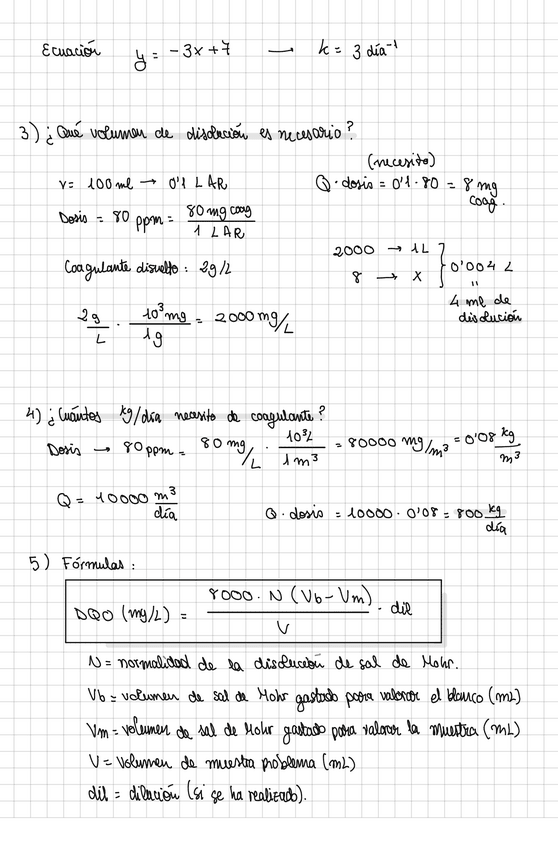 Ecuación y = -3x + 7 → k = 3 día⁻¹
3) ¿Qué volumen de disolución es necesario?
V = 100 ml → 0'1 L AR
Dosis = 80 ppm = 80 mg coag / 1 L AR
Coagulante disuelto: 2g/L
2g/L · 10³ mg/1g = 2000 mg/L
(necesito)
Q · dosis = 0'1 · 80 = 8 mg
coag.
2000 → 1L
8 → x } 0'004 L
"
4 ml de
disolución
4) ¿Cuántos kg/día necesito de coagulante?
Dosis → 80 ppm = 80 mg/L · 10³L/1m³ = 80000 mg/m³ = 0'08 kg/m³
Q = 10000 m³/día
Q · dosis = 10000 · 0'08 = 800 kg/día
5) Fórmulas:
DQO (mg/L) = 8000 · N (Vb - Vm) / V · dil
N = normalidad de la disolución de sal de Mohr.
Vb = volumen de sal de Mohr gastado para valorar el blanco (mL)
Vm = volumen de sal de Mohr gastado para valorar la muestra (mL)
V = Volumen de muestra problema (mL)
dil = dilación (si se ha realizado).